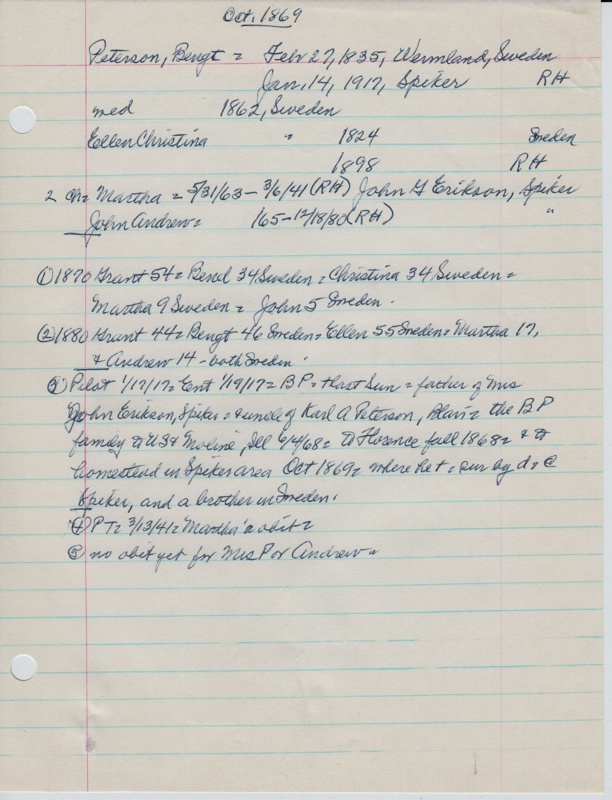 Oct. 1869
Peterson, Bengt = Feb 27, 1835, Wermland, Sweden
Jan. 14, 1917, Spiker RH
med 1862, Sweden
Ellen Christina " 1824 Sweden
1898 RH
2 ch = Martha = 5/31/63 - 3/6/41 (RH) John G Erikson, Spiker
John Andrew = /65 - 12/18/80 (RH) "
(1) 1870 Grant 54 = Bend 34 Sweden = Christina 34 Sweden =
Martha 9 Sweden = John 5 Sweden.
(2) 1880 Grant 44 = Bengt 46 Sweden = Ellen 55 Sweden = Martha 17,
& Andrew 14 - both Sweden.
(3) Pilot 1/17/17 = Ent 1/19/17 = BP = last Sun = father of Mrs
John Erikson, Spiker = & uncle of Karl A Peterson, Blair = the BP
family to US & Moline, Ill 6/4/68 = to Florence fall 1868 = & to
homestead in Spiker area Oct 1869 = where he + = sur by d = @
Spiker, and a brother in Sweden.
(4) PT = 3/13/41 = Martha's obit =
(5) no obit yet for Mrs P or Andrew =